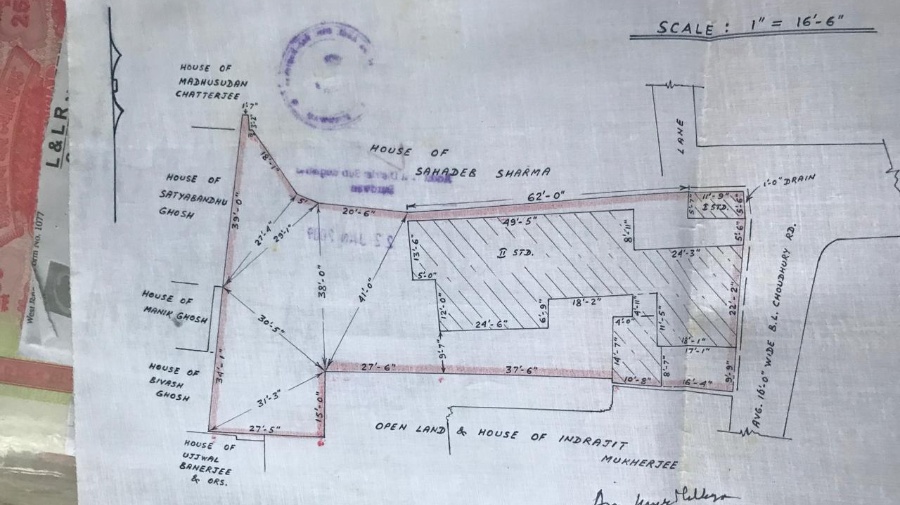 SCALE: 1" = 16'-6"
HOUSE OF
MADHUSUDAN
CHATTERJEE
L&LR
HOUSE OF
SAHADEB SHARMA
LANE
1'-0" DRAIN
HOUSE OF
SATYABANDHU
GHOSH
1'-7"
18'-1"
39'-0"
27'-4"
29'-1"
5"
20'-6"
62'-0"
11'-9"
II STD.
5'-7"
5'-6"
5'-6"
49'-5"
8'-11"
24'-3"
13'-6"
II STD.
5'-0"
38'-0"
41'-0"
12'-0"
24'-6"
6'-9"
18'-2"
4'-11"
4'-0"
11'-5"
22'-2"
18'-1"
17'-1"
AVG. 16'-0" WIDE B.L. CHOUDHURY RD.
HOUSE OF
MANIK GHOSH
30'-5"
34'-1"
HOUSE OF
BIVASH
GHOSH
31'-3"
15'-0"
27'-5"
27'-6"
9'-7"
37'-6"
14'-7"
10'-8"
8'-7"
16'-4"
9'-9"
OPEN LAND & HOUSE OF INDRAJIT
MUKHERJEE
HOUSE OF
UJJWAL
BANERJEE
& ORS.